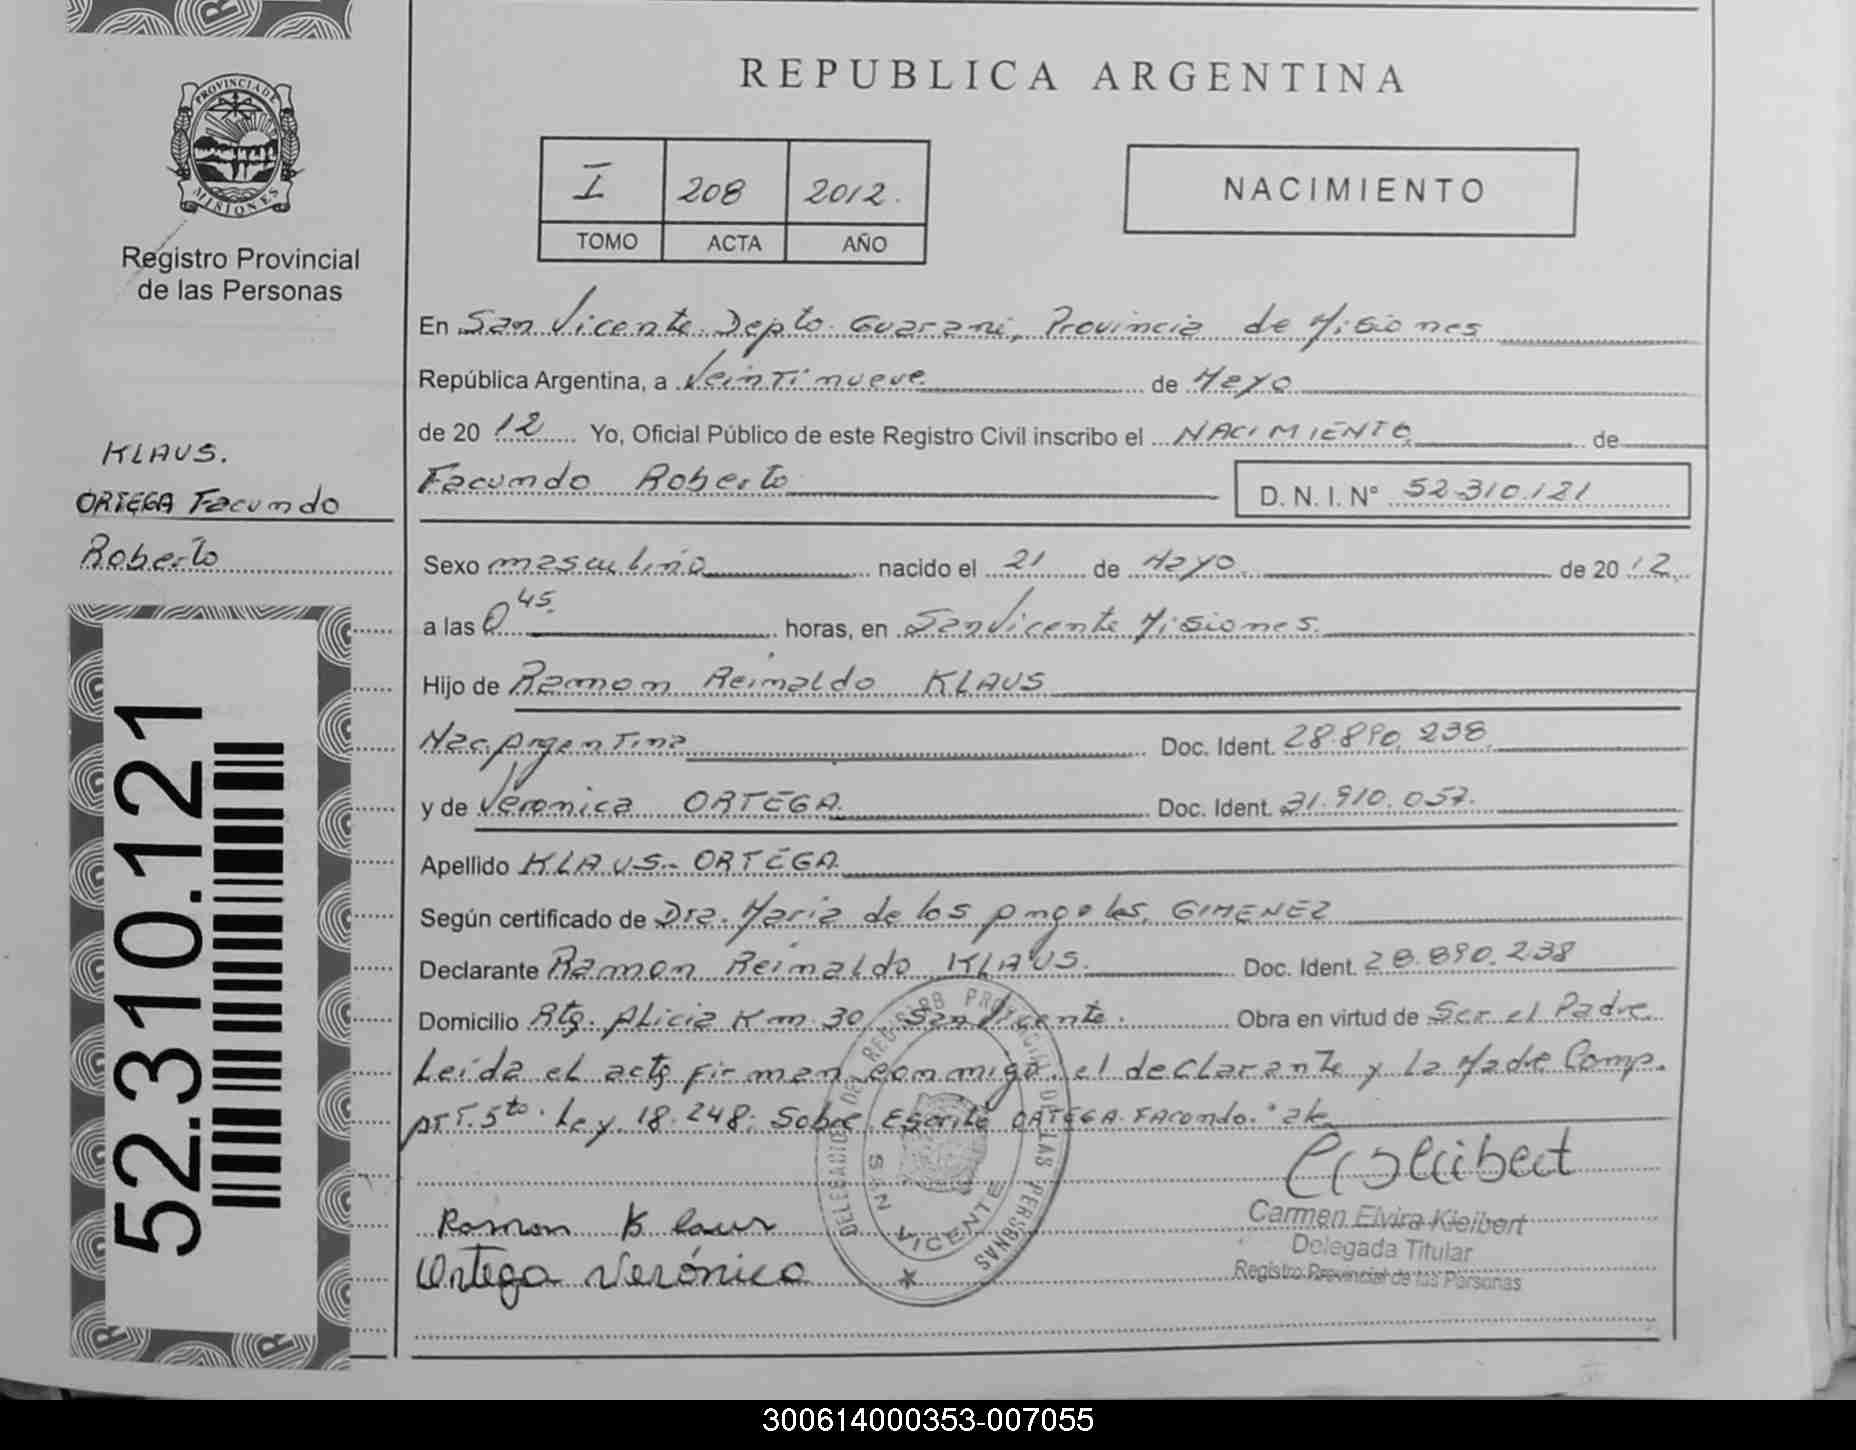 PROVINCIA DE
MISIONES
Registro Provincial
de las Personas
KLAUS.
ORTEGA Facundo
Roberto
52.310.121
REPUBLICA ARGENTINA
I 208 2012.
TOMO ACTA AÑO
NACIMIENTO
En San Vicente Depto. Guarani, Provincia de Misiones
República Argentina, a Veintinueve de Mayo
de 2012 Yo, Oficial Público de este Registro Civil inscribo el NACIMIENTO de
Facundo Roberto D. N. I. N° 52.310.121
Sexo masculino nacido el 21 de Mayo de 2012.
a las 0 45. horas, en San Vicente Misiones.
Hijo de Ramon Reinaldo KLAUS
Nac. Argentina Doc. Ident. 28.890.238.
y de Veronica ORTEGA. Doc. Ident. 31.910.057.
Apellido KLAUS - ORTEGA.
Según certificado de Dra. Maria de los Angeles GIMENEZ
Declarante Ramon Reinaldo KLAUS. Doc. Ident. 28.890.238
Domicilio Alicia Km 30 San Vicente. Obra en virtud de Ser el Padre
Leida el acta firman conmigo el declarante y la Madre Comp.
Art. 5to. Ley 18.248. Sobre Escrito ORTEGA. Facundo.
DELEGACION DEL REGISTRO PROVINCIAL DE LAS PERSONAS
SAN VICENTE
Ramon Klaus
Ortega Verónica
Carmen Elvira Kleibert
Delegada Titular
Registro Provincial de las Personas
300614000353-007055